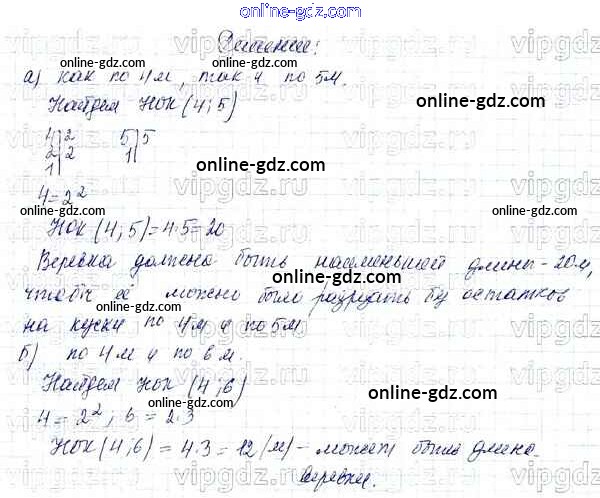 online-gdz.com
Решение:
а) как по 4м, так и по 5м.
Найдем НОК (4;5)
online-gdz.com
4|2 5|5
2|2 1|
1|
online-gdz.com
4=2²
online-gdz.com online-gdz.com online-gdz.com
НОК (4;5)=4·5=20
Веревка должна быть наименьшей длины - 20м,
online-gdz.com
чтобы её можно было разрезать без остатков
на куски по 4м и по 5м.
online-gdz.com online-gdz.com
б) по 4м и по 6м.
Найдем НОК (4;6)
online-gdz.com
4=2²; 6=2·3
online-gdz.com online-gdz.com
НОК (4;6) = 4·3=12 (м) - может быть длина
веревки.
online-gdz.com